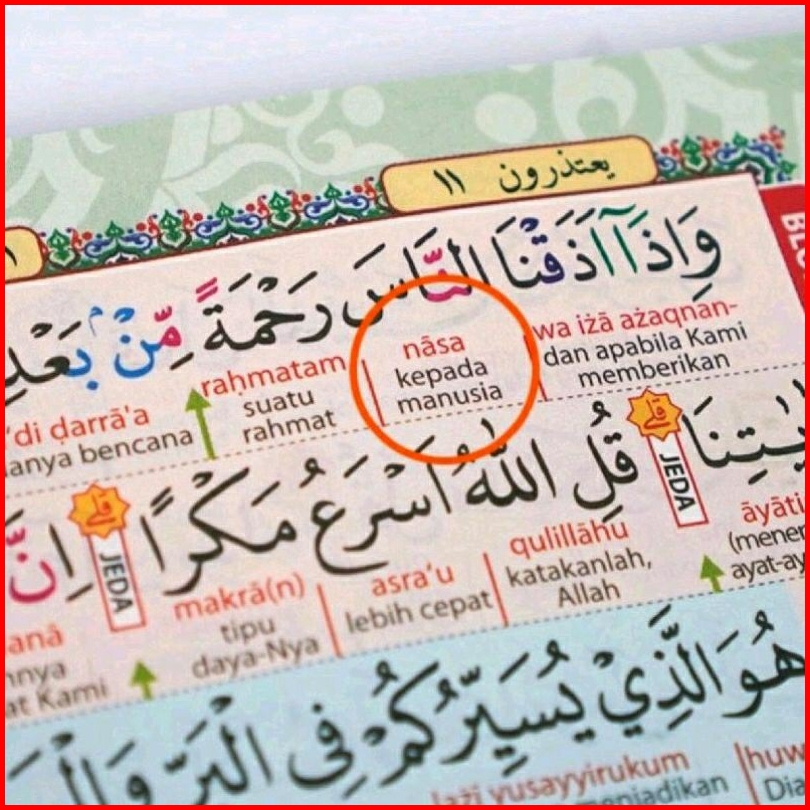 يعتذرون ١١
وَاِذَآ اَذَقْنَا النَّاسَ رَحْمَةً مِّنْۢ بَعْدِ
wa iżā ażaqnan-
dan apabila Kami
memberikan
nāsa
kepada
manusia
raḥmatam
suatu
rahmat
'di ḍarrā'a
anya bencana
قُلِ اللّٰهُ اَسْرَعُ مَكْرًاۗ اِنَّ
JEDA
āyāti
ayat-ay
qulillāhu
katakanlah,
Allah
asra'u
lebih cepat
makrā(n)
tipu
daya-Nya
JEDA
at Kami
هُوَ الَّذِيْ يُسَيِّرُكُمْ فِى الْبَرِّ
lażī yusayyirukum